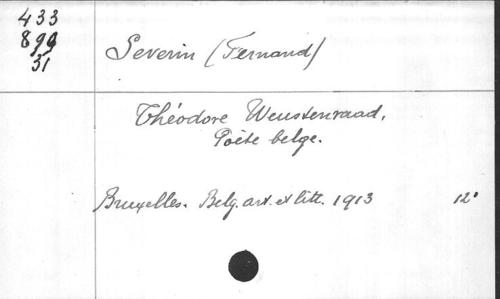 433
899
31
Severin (Fernand)
Théodore Weustenraad,
Poète belge.
Bruxelles. Belg. art. et litt. 1913 12°